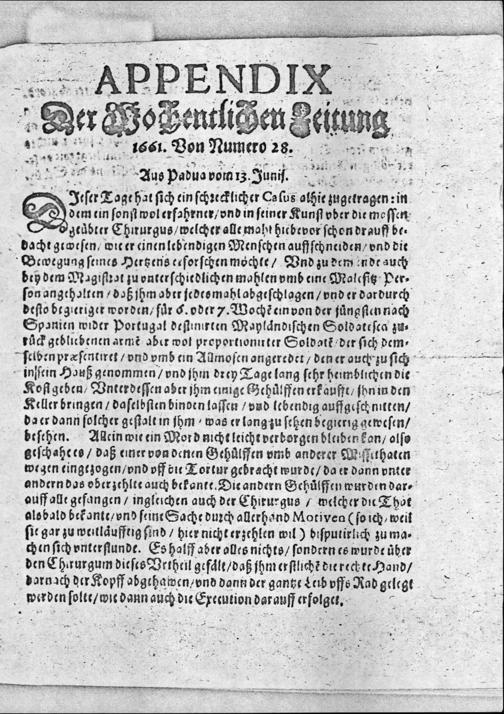 APPENDIX
Der Wochentlichen Zeitung
1661. Von Numero 28.
Aus Padua vom 13. Junij.
DJeser Tage hat sich ein schrecklicher Casus alhie zugetragen: in
dem ein sonst wol erfahrner/ vnd in seiner Kunst vber die massen
geübter Chirurgus/ welcher alle mahl hiebevor schon drauff be-
dacht gewesen/ wie er einen lebendigen Menschen auffschneiden/ vnd die
Bewegung seines Hertzens erforschen möchte/ Vnd zu dem ende auch
bey dem Magistrat zu vnterschiedlichen mahlen vmb eine Malefitz Per-
son angehalten/ daß jhm aber jedesmahl abgeschlagen/ vnd er dardurch
desto begieriger worden/ für 6. oder 7. Wochē ein von der jüngsten nach
Spanien wider Portugal destinirten Mayländischen Soldatesca zu-
rück gebliebenen armē aber wol proportionirter Soldatē/ der sich dem-
selben præsentiret/ vnd vmb ein Allmosen angeredet/ den er auch zu sich
in sein Hauß genommen/ vnd jhm drey Tage lang sehr heimblichen die
Kost geben/ Vnterdessen aber jhm einige Gehülffen erkaufft/ jhn in den
Keller bringen/ daselbsten binden lassen/ vnd lebendig auffgeschnitten/
da er dann solcher gestalt in jhm/ was er lang zu sehen begierig gewesen/
besehen. Allein wie ein Mord nicht leicht verborgen bleiben kan/ also
geschahe es/ daß einer von denen Gehülffen vmb anderer Missethaten
wegen eingezogen/ vnd vff die Tortur gebracht wurde/ da er dann vnter
andern das oberzehlte auch bekante. Die andern Gehülffen wurden dar-
auff alle gefangen/ ingleichen auch der Chirurgus/ welcher die That
alsbald bekante/ vnd seine Sache durch allerhand Motiven (so ich/ weil
sie gar zu weitläufftig sind/ hier nicht erzehlen wil) disputirlich zu ma-
chen sich vnterstunde. Es halff aber alles nichts/ sondern es wurde über
den Chirurgum dieses Vrtheil gefält/ daß jhm erstlichē die rechte Hand/
darnach der Kopff abgehawen/ vnd dann der gantze Leib vffs Rad gelegt
werden solte/ wie dann auch die Execution darauff erfolget.